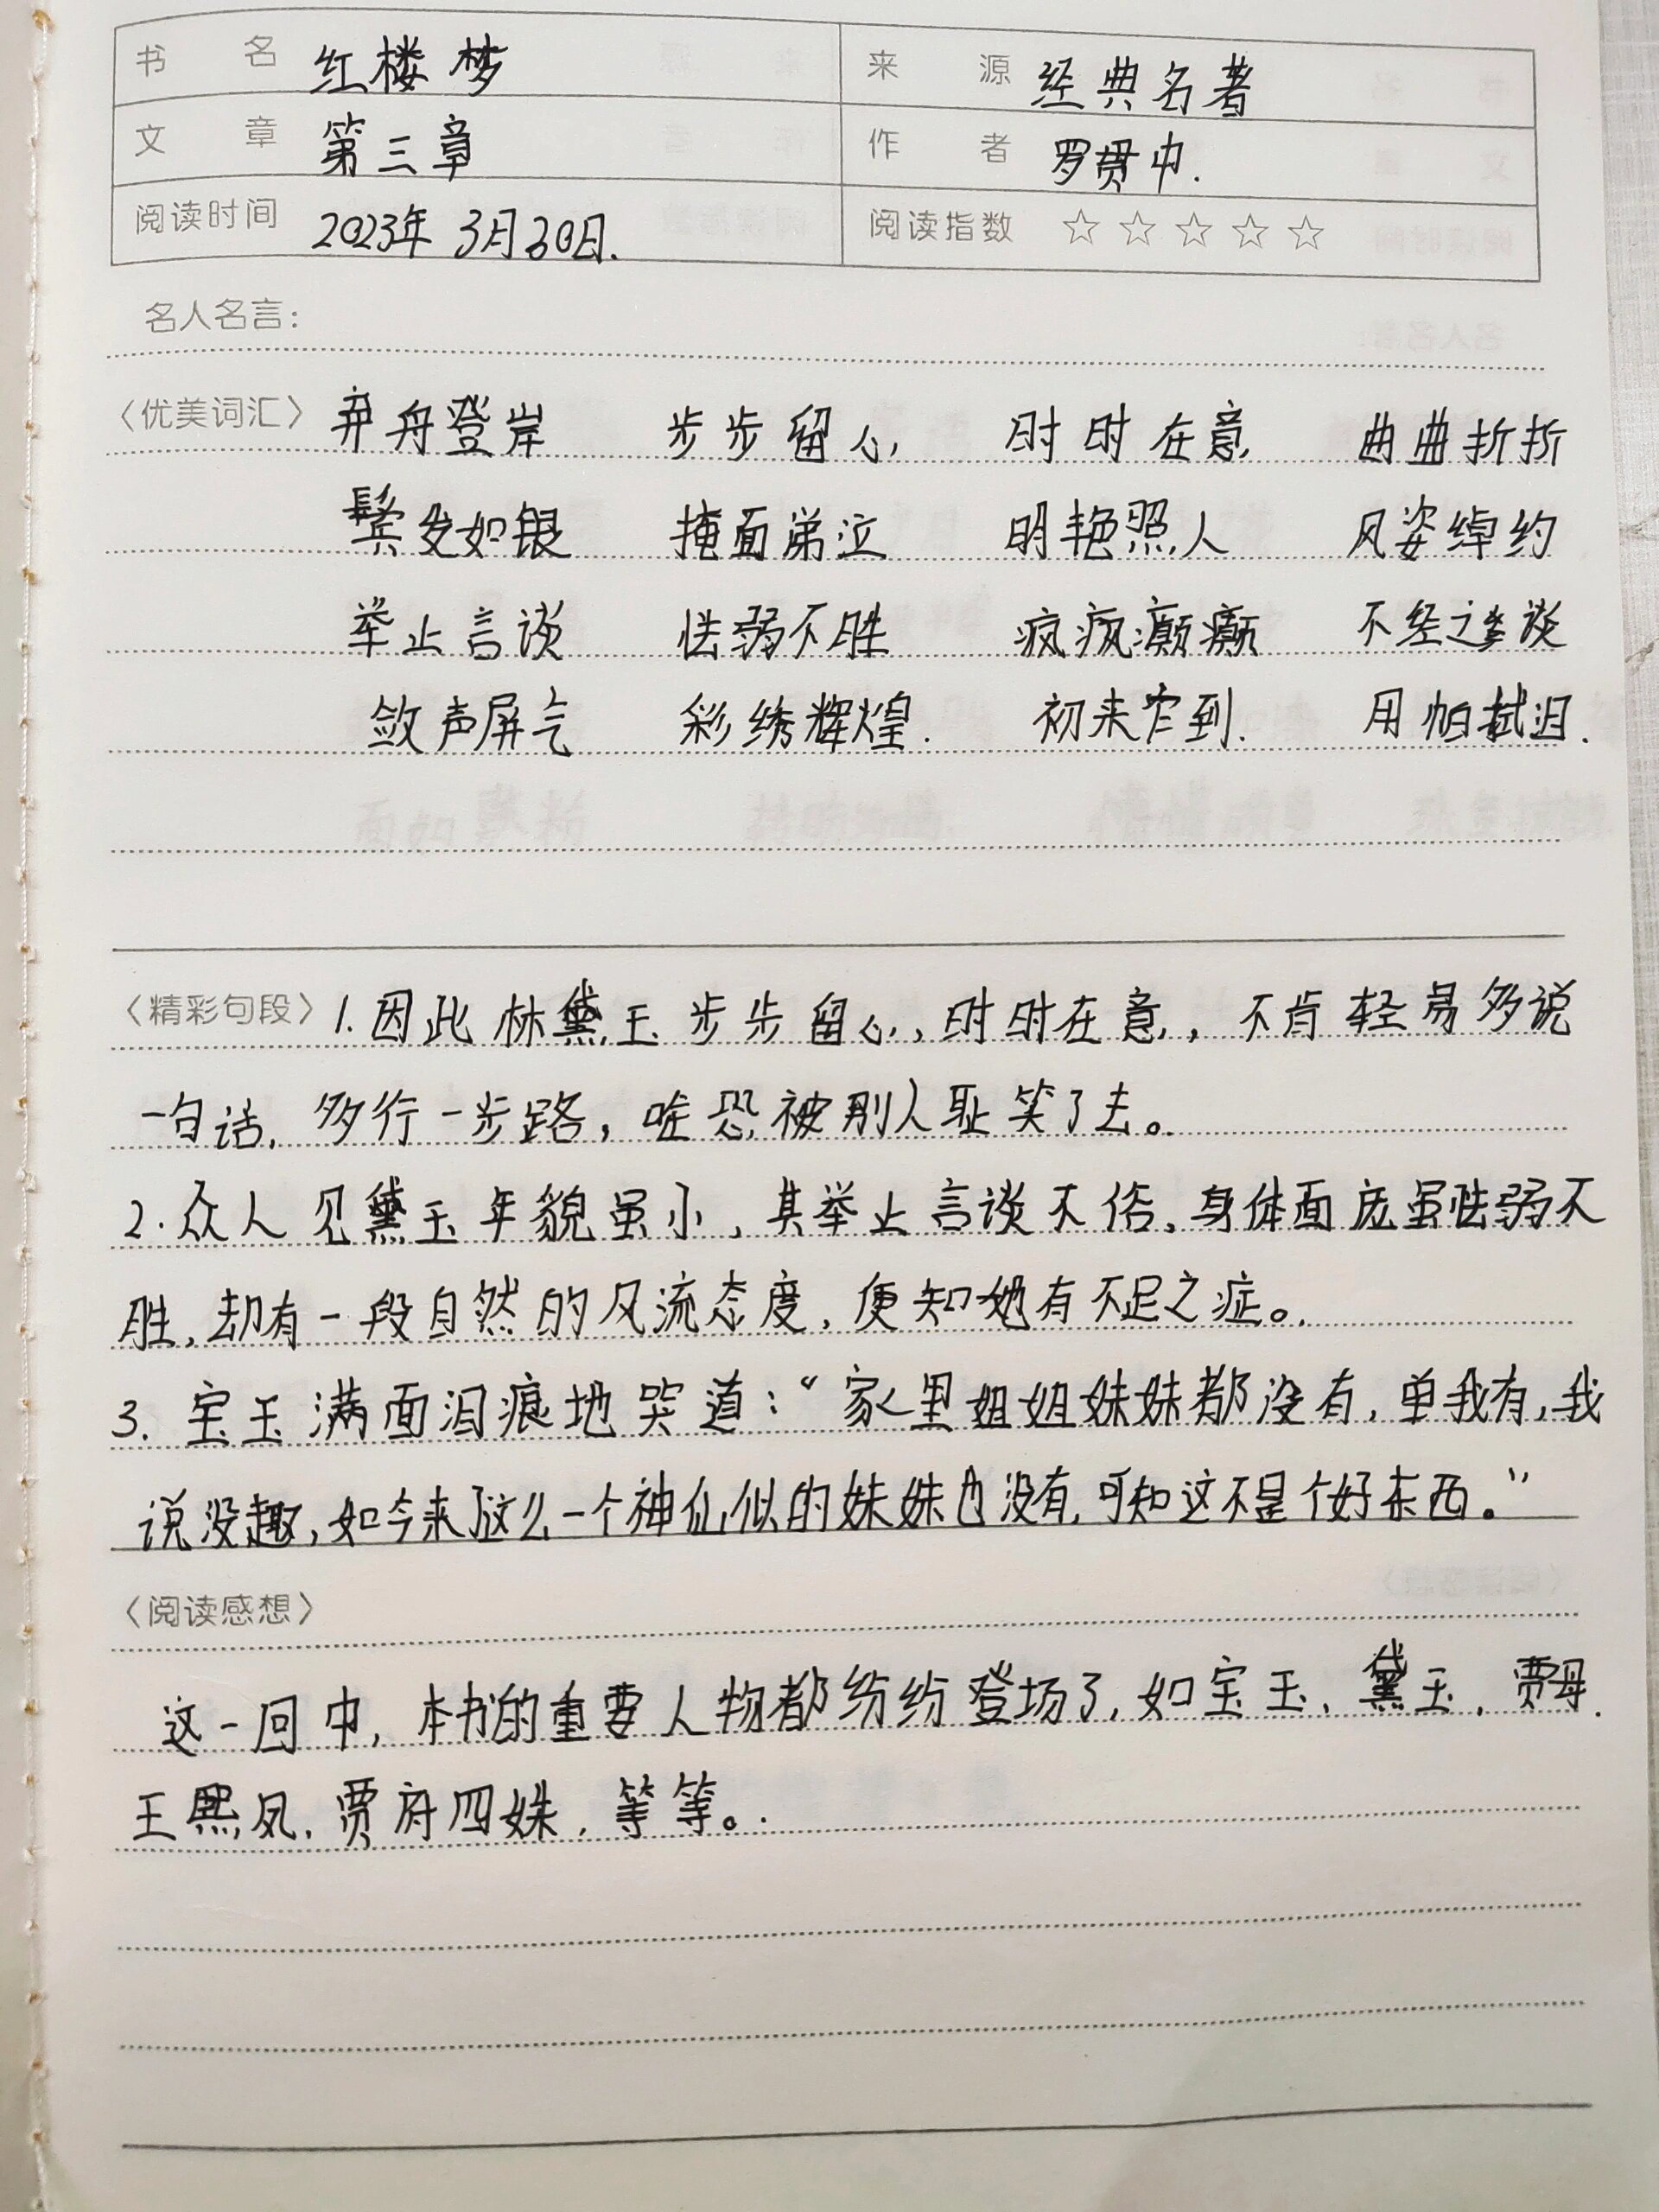 书 名 红楼梦 来 源 经典名著
文 章 第三章 作 者 罗贯中.
阅读时间 2023年 3月30日. 阅读指数 ☆ ☆ ☆ ☆ ☆
名人名言：
〈优美词汇〉 弃舟登岸 步步留心 时时在意 曲曲折折
鬓发如银 掩面涕泣 明艳照人 风姿绰约
举止言谈 怯弱不胜 疯疯癫癫 不经之谈
敛声屏气 彩绣辉煌. 初来乍到. 用帕拭泪.
〈精彩句段〉 1.因此林黛玉步步留心,时时在意,不肯轻易多说
一句话,多行一步路,唯恐被别人耻笑了去。
2.众人见黛玉年貌虽小,其举止言谈不俗,身体面庞虽怯弱不
胜,却有一段自然的风流态度,便知她有不足之症。
3.宝玉满面泪痕地哭道:“家里姐姐妹妹都没有,单我有,我
说没趣,如今来了这么一个神仙似的妹妹也没有,可知这不是个好东西。”
〈阅读感想〉
这一回中,本书的重要人物都纷纷登场了,如宝玉、黛玉、贾母、
王熙凤、贾府四姝,等等。